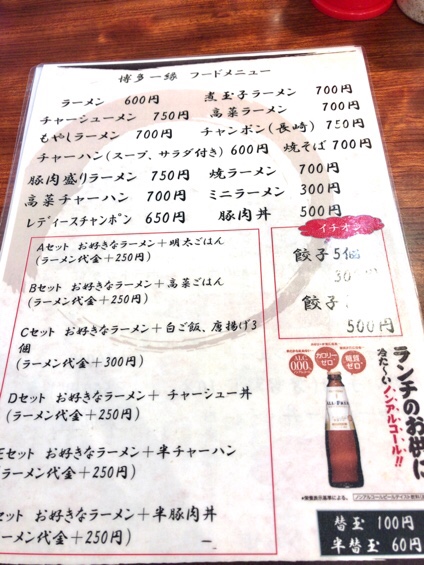 博多一縁 フードメニュー
ラーメン 600円 煮玉子ラーメン 700円
チャーシューメン 750円 高菜ラーメン 700円
もやしラーメン 700円 チャンポン(長崎) 750円
チャーハン(スープ、サラダ付き) 600円 焼そば 700円
豚肉盛りラーメン 750円 焼ラーメン 700円
高菜チャーハン 700円 ミニラーメン 300円
レディースチャンポン 650円 豚肉丼 500円
イチオシ
餃子5個
餃子
500円
Aセット お好きなラーメン+明太ごはん
(ラーメン代金+250円)
Bセット お好きなラーメン+高菜ごはん
(ラーメン代金+250円)
Cセット お好きなラーメン+白ご飯、唐揚げ3
個
(ラーメン代金+300円)
Dセット お好きなラーメン+チャーシュー丼
(ラーメン代金+250円)
Eセット お好きなラーメン+半チャーハン
(ラーメン代金+250円)
セット お好きなラーメン+半豚肉丼
ラーメン代金+250円)
ALC. 0.00%
カロリーゼロ
糖質ゼロ
ランチのお供に
冷た〜いノンアルコール!!
替玉 100円
半替玉 60円